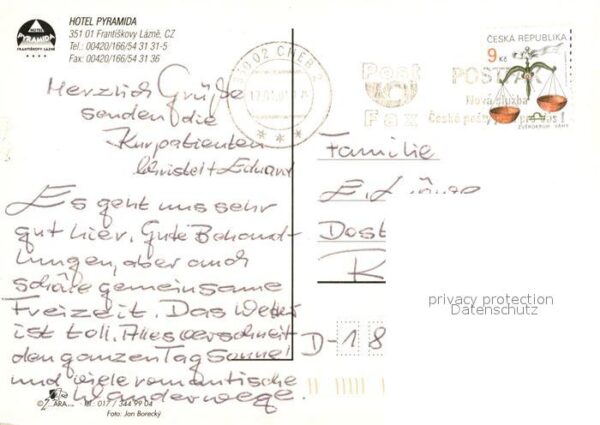 HOTEL PYRAMIDA
351 01 Františkovy Lázně, CZ
Tel.: 00420/166/54 31 31-5
Fax: 00420/166/54 31 36
PYRAMIDA
FRANTIŠKOVY LÁZNĚ
350 02 CHEB 2
Post
Fax
POSTFAX
Nová služba
České pošty pro Vás!
ČESKÁ REPUBLIKA
9 Kč
ZVĚROKRUH VÁHY
Herzlich Grüße
senden die
Kurpatienten
Christel + Eduard
Es geht uns sehr
gut hier. Gute Behand-
lungen, aber auch
schöne gemeinsame
Freizeit. Das Wetter
ist toll. Alles verschneit
den ganzen Tag Sonne
und viele romantische
Wanderwege.
Familie
E.
Dost
K
D-18
privacy protection
Datenschutz
Tel.: 017 / 344 99 04
Foto: Jan Borecký